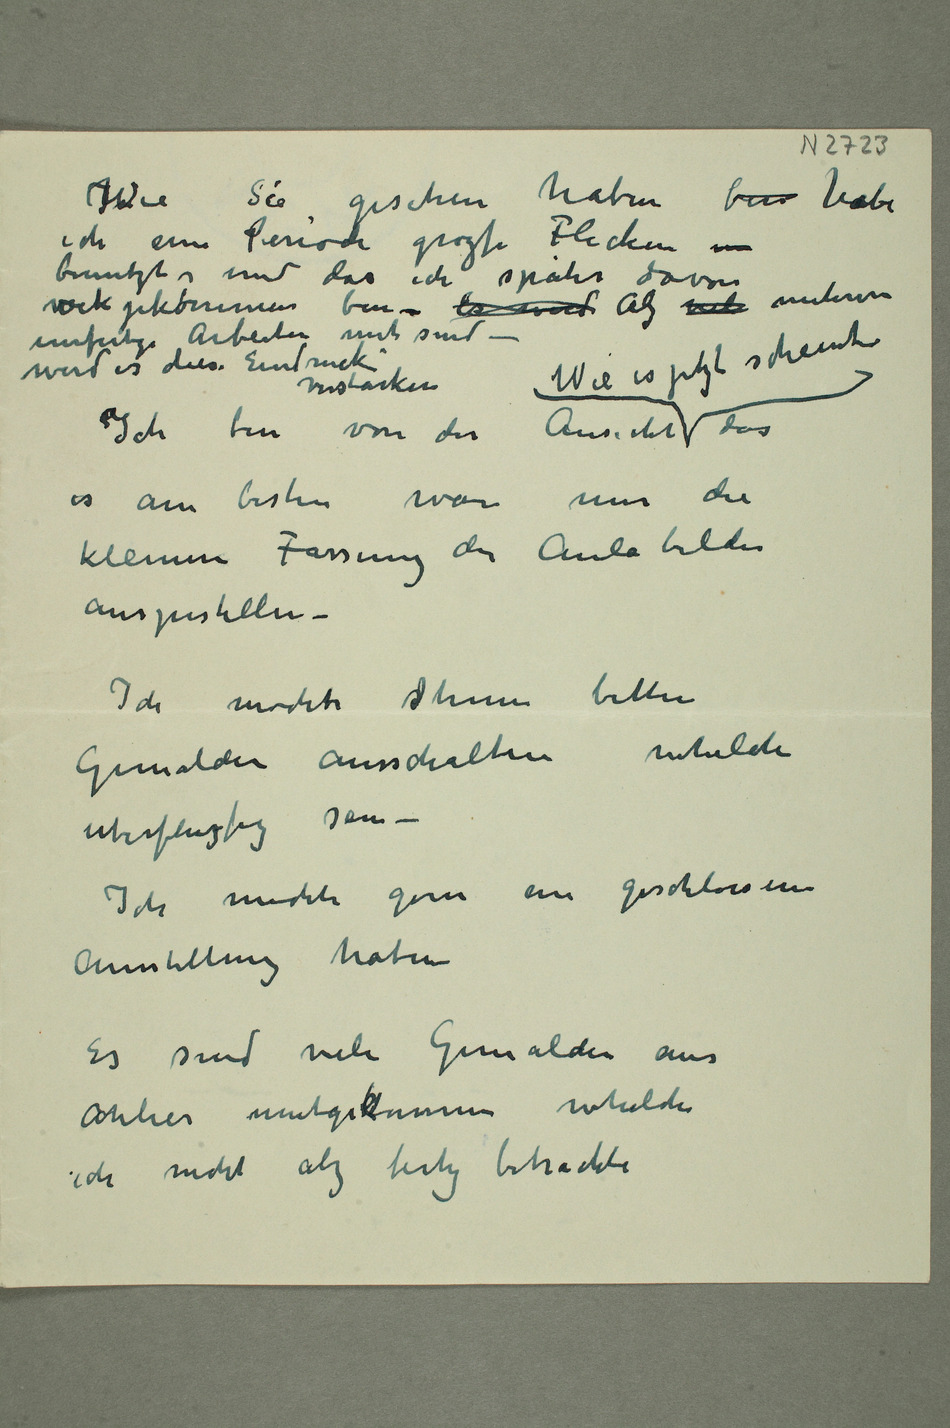 N 2723
Wie Sie gesehen haben bin habe
ich eine Periode grozse Flecken
benutzt, und das ich später davon
wekgekommen bin – Es wird Alz mehrere
unfertige Arbeiten mit sind –
wird es diese Eindruck
verstärken
Wie es jetzt scheint
Ich bin von der Ansicht das
es am besten wäre nur die
kleinen Fassung der Aula bilder
auszustellen –
Ich möchte Ihnen bitten
Gemälden ausschalten whelche
uberfluzsig sein –
Ich mochte gern ein geschlossene
Ausstellung haben
Es sind viele Gemälden aus
Atelier mitgekommen whelche
ich nicht alz fertig betrachte